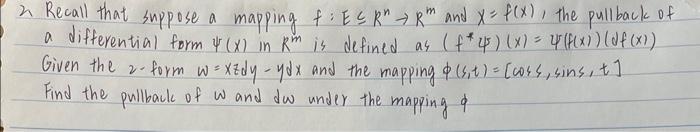 2. Recall that suppose a mapping f : E ⊆ Rⁿ → Rᵐ and x = f(x), the pullback of
a differential form ψ(x) in Rᵐ is defined as (f*ψ)(x) = ψ(f(x))(df(x))
Given the 2-form w = xzdy - ydx and the mapping ϕ(s,t) = [coss, sins, t]
Find the pullback of w and dw under the mapping ϕ